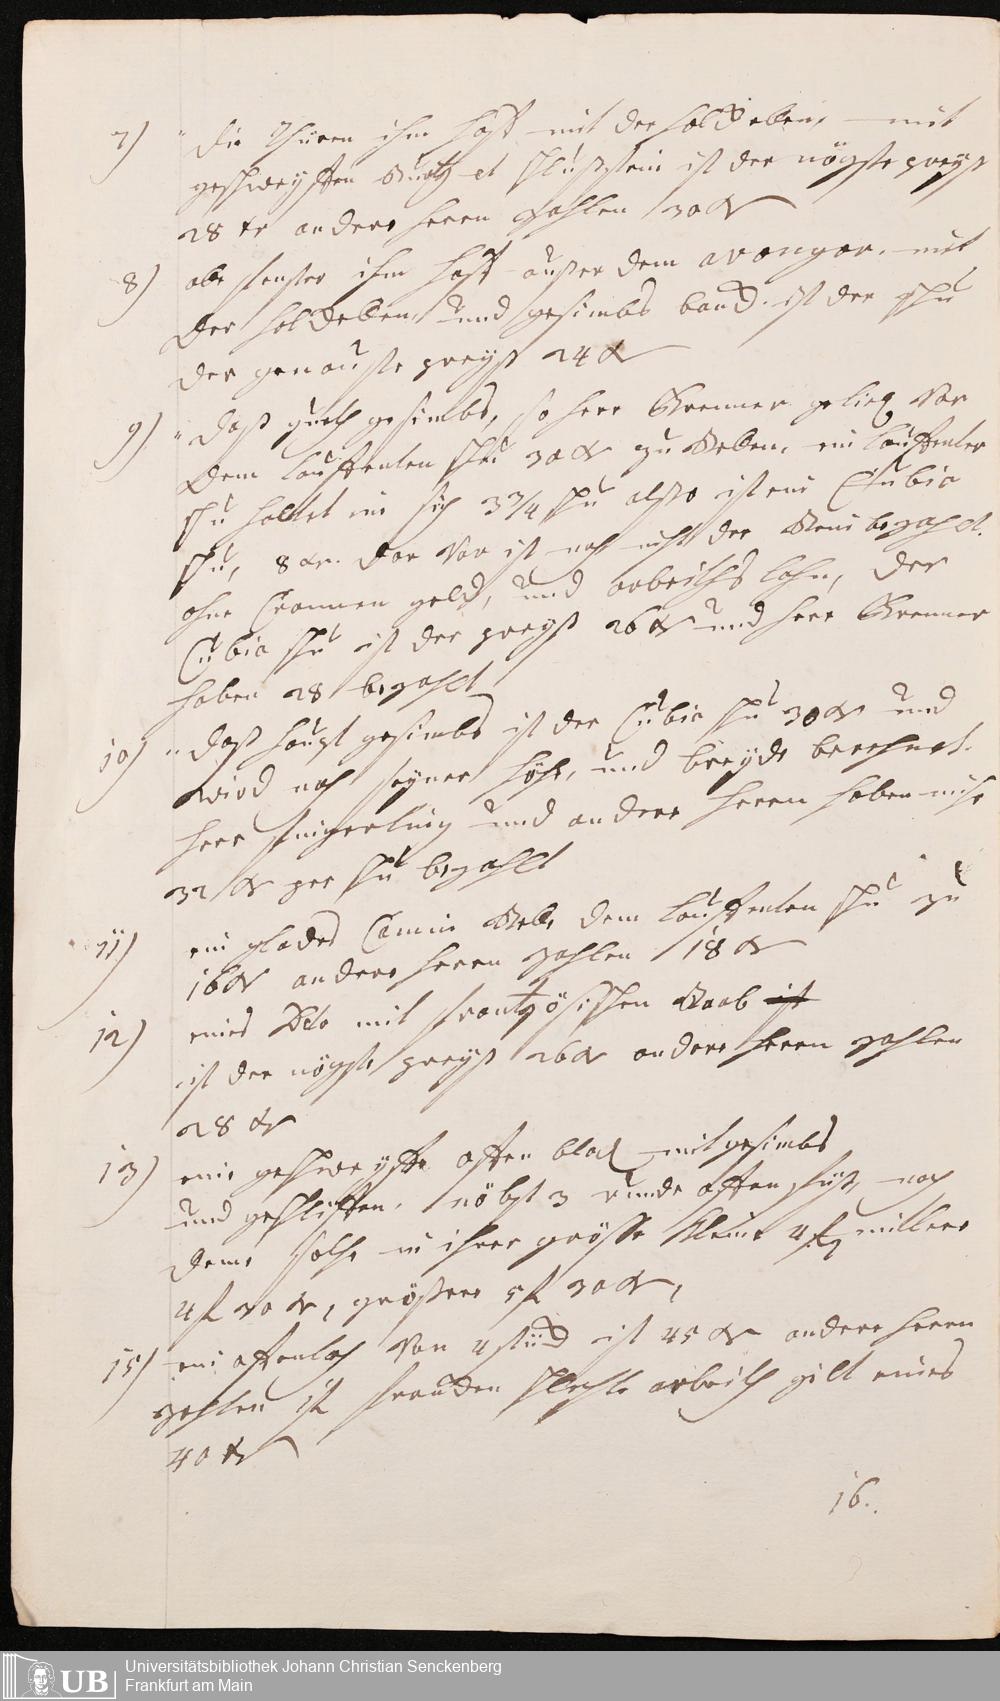 7) die Thüren ihm hoff mit der holdkelen, mit
geschweifften Sturtz et schlußstein ist der nögste preyß
28 xr andere herrn zahlen 30 xr
8) alle fenster ihm hoff außer dem avongor. mit
der holdkelen, und gesimbs band. ist der schu
der genauste preyß 24 xr
9) daß gurth gesimbs, so herr Brenner gelieg vor
dem lauffenten schu 30 xr zu stellen, ein lauffenter
schu haltet in sich 3 3/4 schu also ist ein Cubic
schu, 8 xr. dar vor ist noch nicht der stein bezahlt.
ohne Crannen geld, und arbeiths lohn, der
Cubic schu ist der preyß 26 xr und herr Brenner
haben 28 bezahlt
10) daß haupt gesimbs ist der Cubic schu 30 xr und
wird nach seyner höhe, und breyde berechnet.
herr und andere herrn haben mihr
32 xr per schu bezahlt
11) ein glades Camin stelle dem lauffenten schu zu
16 xr andere herrn zahlen 18 xr
12) eines dito mit frantzösischen staab ist
ist der nögste preyß 26 xr andere herrn zahlen
28 xr
13) eine geschweyffte offen blad mit gesimbs
und geschliffen, nöbst 3 runde offen füß, nach
deme solche in ihrer grösse kleine 4 fl, millere
4 fl 30 xr, größere 5 fl 30 xr,
15) ein offenloch von 4 stück ist 45 xr andere herrn
zahlen 1 fl frauden schlechte arbeith gilt eines
40 xr
16.
UB Universitätsbibliothek Johann Christian Senckenberg
Frankfurt am Main